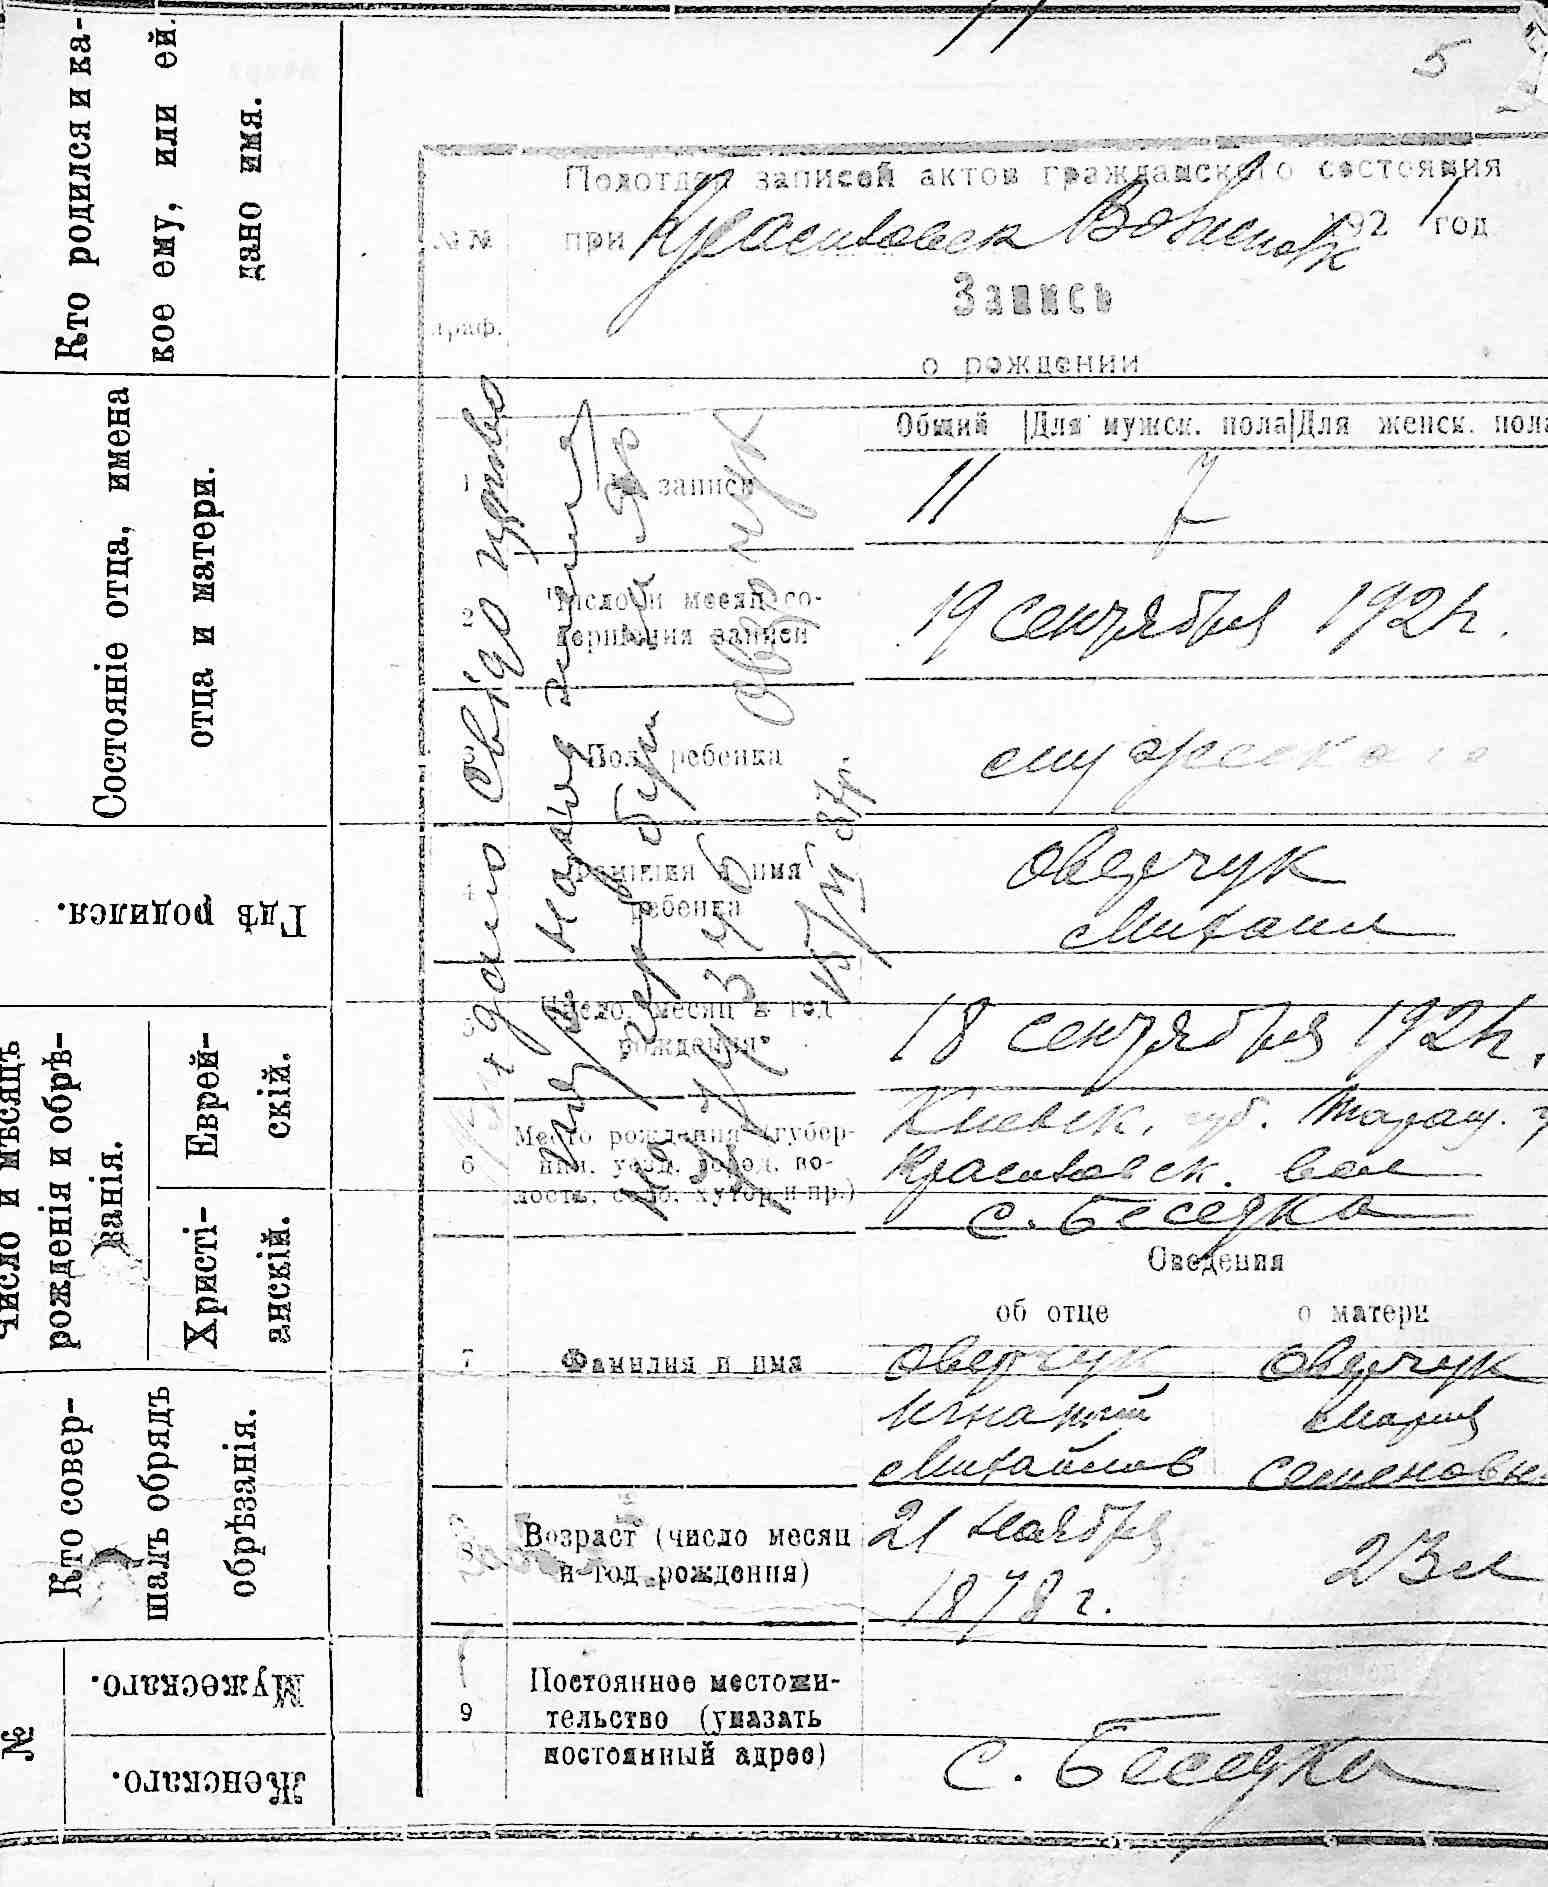 5
Кто родился и ка-
кое ему, или ей.
дано имя.
Состояніе отца, имена
отца и матери.
Гдѣ родился.
Число и мѣсяцъ
рожденія и обрѣ-
занія.
Еврей-
скій.
Христі-
анскій.
Кто совер-
шалъ обрядъ
обрѣзанія.
№
Мужескаго.
Женскаго.
Подотдел записей актов гражданского состояния
№№ при 1921 год
граф.
Запись
о рождении
Общий Для мужск. пола Для женск. пола
1 № записи 11 7
2 Число и месяц со-
вершения записи 19 сентября 1921г.
3 Пол ребенка мужескаго
4 Фамилия и имя
ребенка
Оверчук
Михаил
5 Число, месяц и год
рождения 18 сентября 1921г.
6 Место рождения (губер-
ния, уезд, город, во-
лость, село, хутор и пр.)
Киевск. губ. Таращ. у
вол
с. Беседка
Сведения
об отце о матери
7 Фамилия и имя Оверчук Оверчук
Игнатий Мария
Михайлов Семеновн
8 Возраст (число месяц
и год рождения)
21 Ноября
1878 г. 23 л
9 Постоянное местожи-
тельство (указать
постоянный адрес)
с. Беседка
Видано свідоцтво
Оверчук